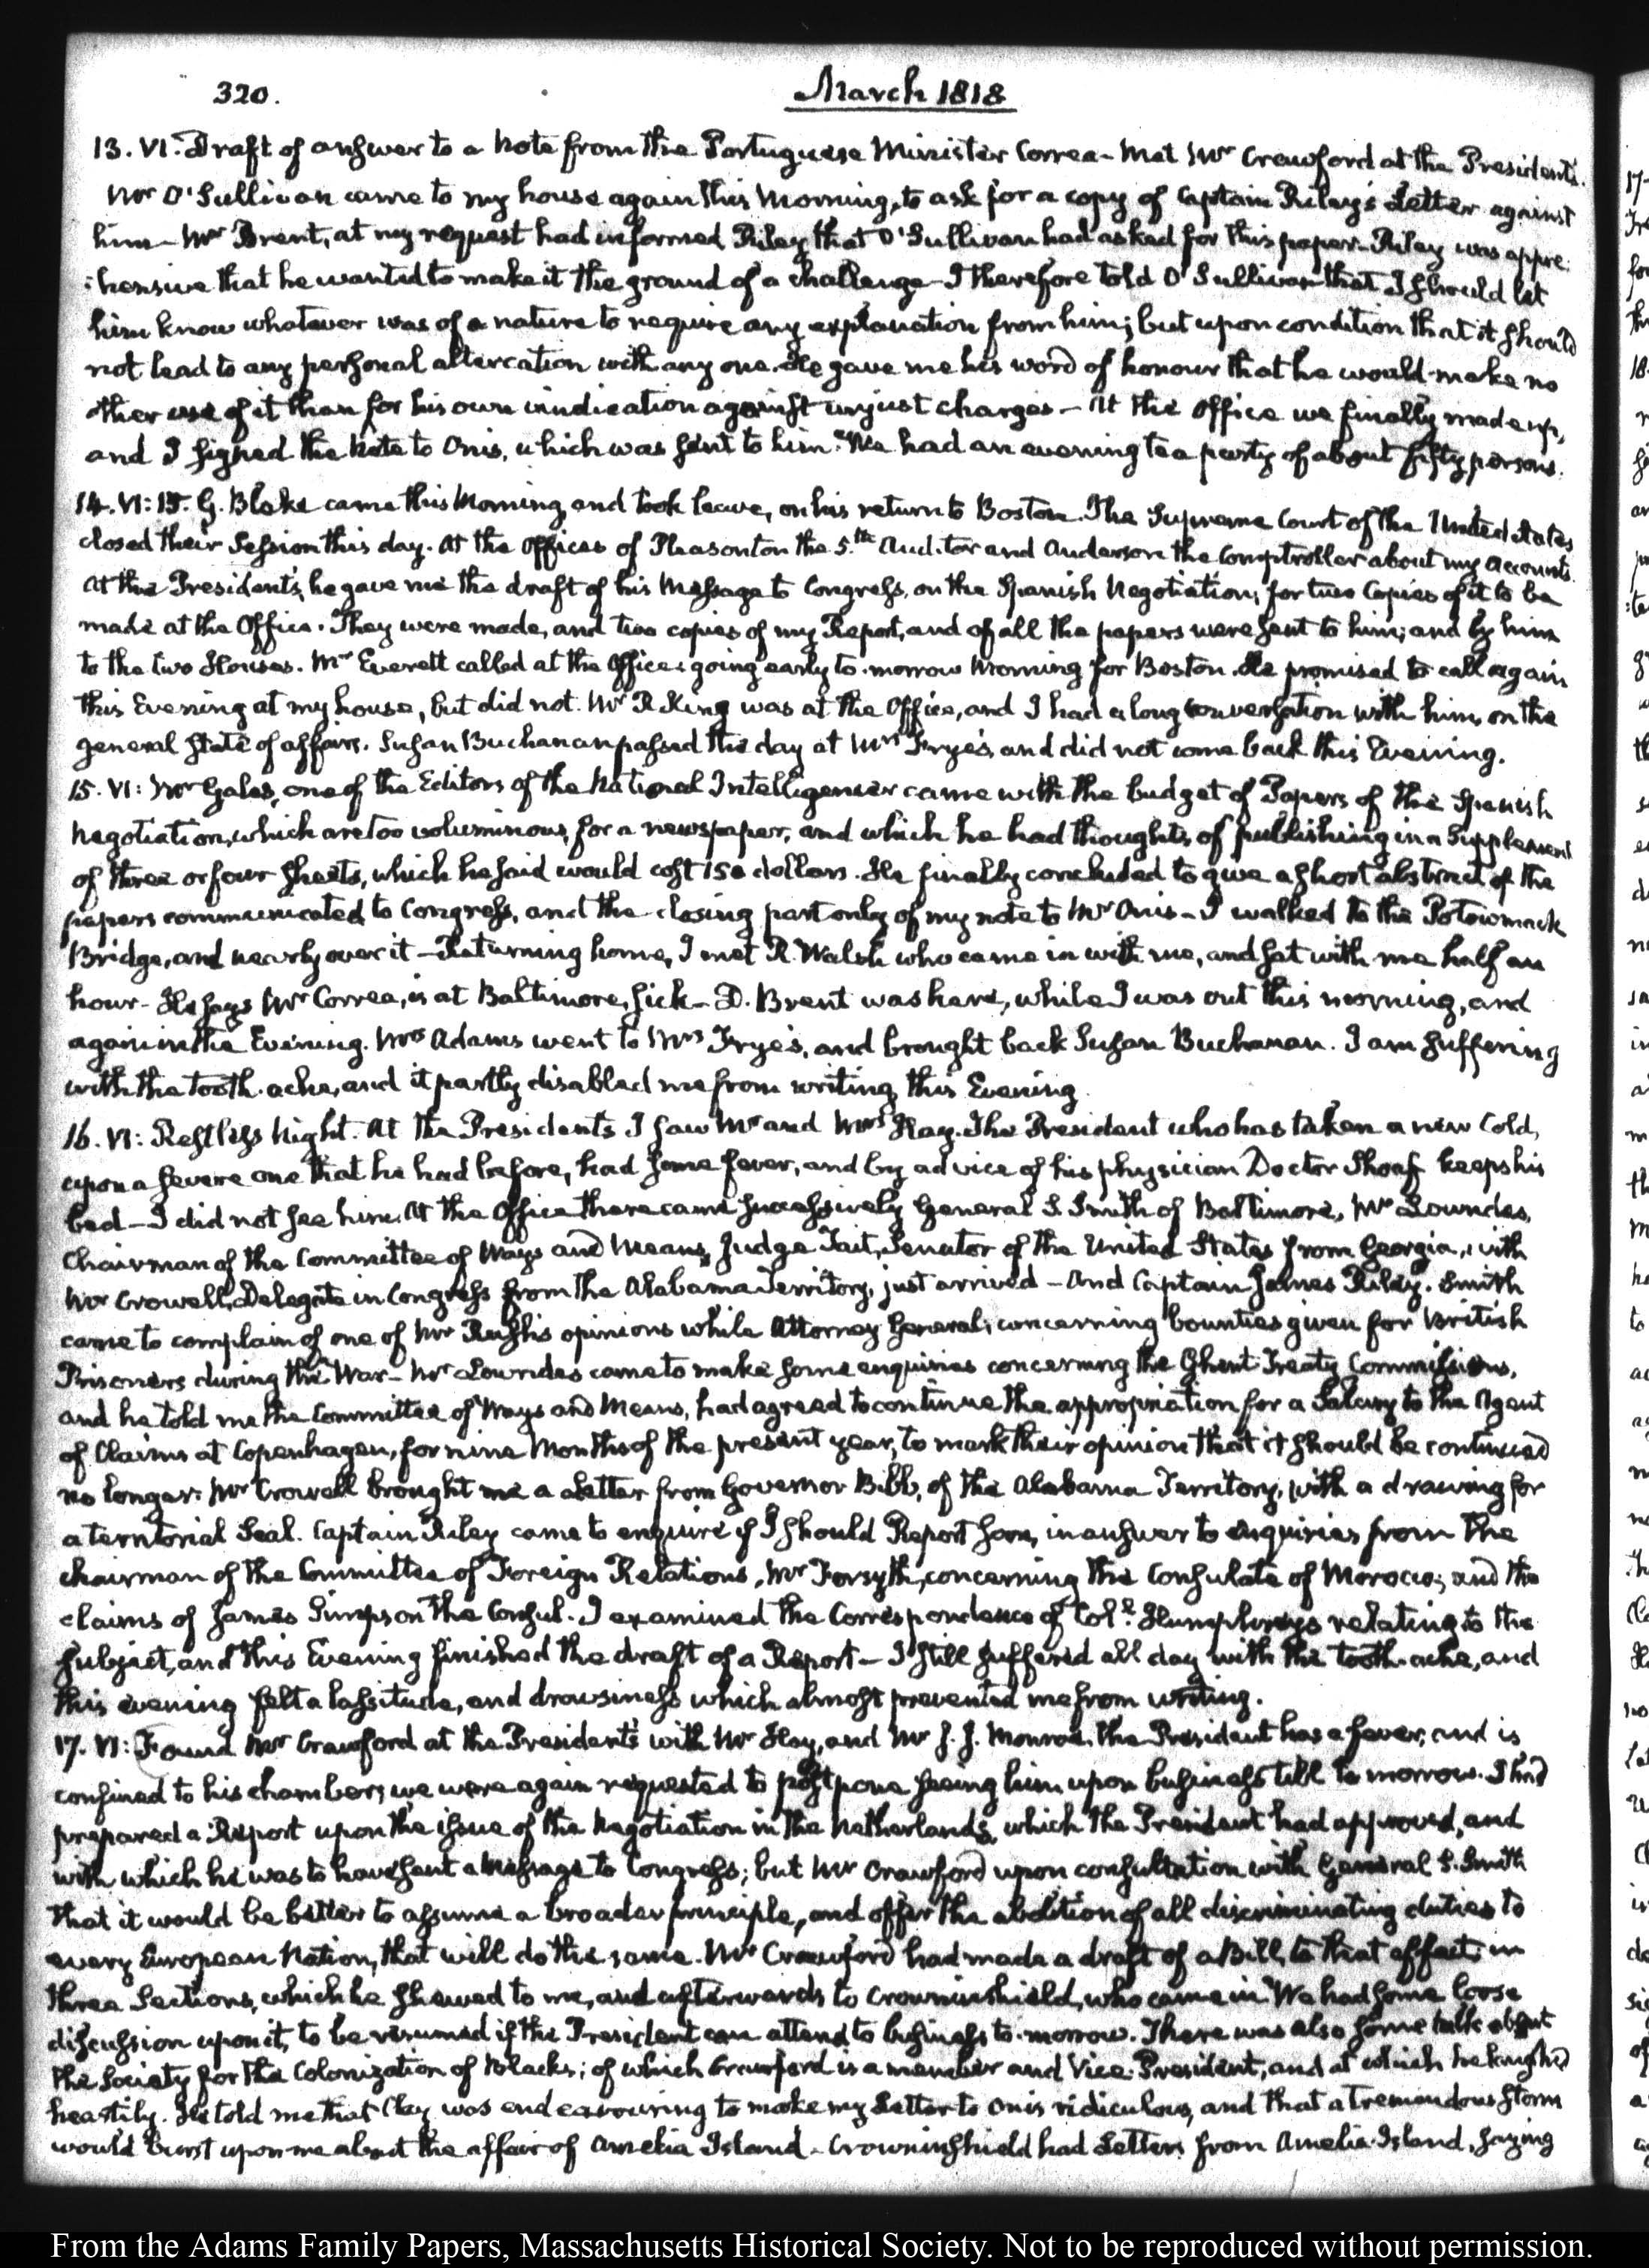 320.
March 1818
13. VI. Draft of answer to a Note from the Portuguese Minister Correa - Met Mr Crawford at the Presidents.
Mr O'Sullivan came to my house again this Morning, to ask for a copy of Captain Riley's Letter against
him - Mr Brent, at my request had informed Riley that O'Sullivan had asked for this paper - Riley was appre:
:hensive that he wanted to make it the ground of a challenge - I therefore told O'Sullivan that I should let
him know whatever was of a nature to require any explanation from him; but upon condition that it should
not lead to any personal altercation with any one. He gave me his word of honour that he would make no
other use of it than for his own vindication against unjust charges - At the Office we finally made up,
and I signed the Note to Onis, which was sent to him. We had an evening tea party of about fifty persons.
14. VI: 15. G. Blake came this Morning, and took leave, on his return to Boston. The Supreme Court of the United States
closed their Session this day. At the Offices of Pleasonton the 5.th Auditor and Anderson the Comptroller about my Accounts.
At the President's, he gave me the draft of his Message to Congress, on the Spanish Negotiation, for two Copies of it to be
made at the Office. They were made, and two copies of my Report, and of all the papers were sent to him; and by him
to the two Houses. Mr Everett called at the Office: going early to-morrow Morning for Boston. He promised to call again
this Evening at my house, but did not. Mr R. King was at the Office, and I had a long conversation with him, on the
general state of affairs. Susan Buchanan passed the day at Mrs Frye's, and did not come back this Evening.
15. VI: Mr Gales, one of the Editors of the National Intelligencer came with the budget of Papers of the Spanish
Negotiation, which are too voluminous, for a newspaper, and which he had thoughts of publishing in a Supplement
of three or four sheets, which he said would cost 150 dollars. He finally concluded to give a short abstract of the
papers communicated to Congress, and the closing part only of my note to Mr Onis - I walked to the Potowmack
Bridge, and nearly over it - Returning home, I met R. Walsh who came in with me, and sat with me half an
hour - He says Mr Correa, is at Baltimore, sick - D. Brent was here, while I was out this morning, and
again in the Evening. Mrs Adams went to Mrs Frye's, and brought back Susan Buchanan. I am suffering
with the tooth-ache, and it partly disabled me from writing this Evening.
16. VI: Restless Night. At the Presidents I saw Mr and Mrs Hay. The President who has taken a new Cold,
upon a severe one that he had before, had some fever, and by advice of his physician Doctor Shoaf keeps his
bed - I did not see him. At the Office there came successively General S. Smith of Baltimore, Mr Lowndes,
Chairman of the Committee of Ways and Means, Judge Tait, Senator of the United States from Georgia, with
Mr Crowell, Delegate in Congress from the Alabama Territory, just arrived - And Captain James Riley. Smith
came to complain of one of Mr Rush's opinions while Attorney General, concerning bounties given for British
Prisoners during the War - Mr Lowndes came to make some enquiries concerning the Ghent Treaty Commissions,
and he told me the Committee of Ways and Means, had agreed to continue the appropriation for a Salary to the Agent
of Claims at Copenhagen, for nine Months of the present year, to mark their opinion that it should be continued
no longer. Mr Crowell brought me a Letter from Governor Bibb, of the Alabama Territory, with a drawing for
a territorial Seal. Captain Riley came to enquire if I should Report soon, in answer to enquiries from the
chairman of the Committee of Foreign Relations, Mr Forsyth, concerning the Consulate of Morocco; and the
claims of James Simpson the Consul. I examined the Correspondence of Col.l Humphreys relating to the
subject, and this Evening finished the draft of a Report - I still suffered all day with the tooth-ache, and
this evening felt a lassitude, and drowsiness which almost prevented me from writing.
17. VI: Found Mr Crawford at the President's with Mr Hay, and Mr J. J. Monroe. The President has a fever, and is
confined to his chamber; we were again requested to postpone seeing him upon business till to morrow. I had
prepared a Report upon the issue of the Negotiation in the Netherlands, which the President had approved, and
with which he was to have sent a Message to Congress; but Mr Crawford upon consultation with General S. Smith
that it would be better to assume a broader principle, and offer the abolition of all discriminating duties to
every European Nation, that will do the same. Mr Crawford had made a draft of a Bill, to that effect in
three Sections, which he shewed to me, and afterwards to Crowninshield, who came in. We had some loose
discussion upon it, to be resumed if the President can attend to business to-morrow. There was also some talk about
the Society for the Colonization of Blacks; of which Crawford is a member and Vice-President, and at which he laughed
heartily. He told me that Clay was endeavouring to make my Letter to Onis ridiculous, and that a tremendous storm
would burst upon me about the affair of Amelia Island - Crowninshield had Letters from Amelia Island, saying
From the Adams Family Papers, Massachusetts Historical Society. Not to be reproduced without permission.